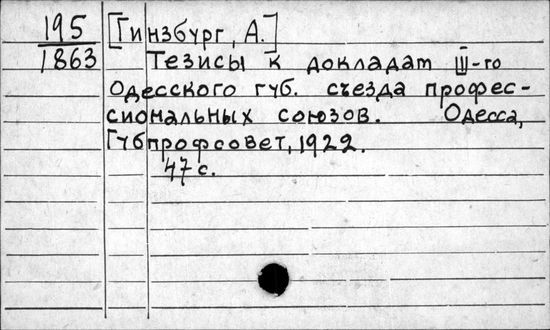 195
1863
[Гинзбург, А.]
Тезисы к докладат III-го
Одесского губ. съезда профес-
сиональных союзов. Одесса,
Губпрофсовет, 1922.
47 с.